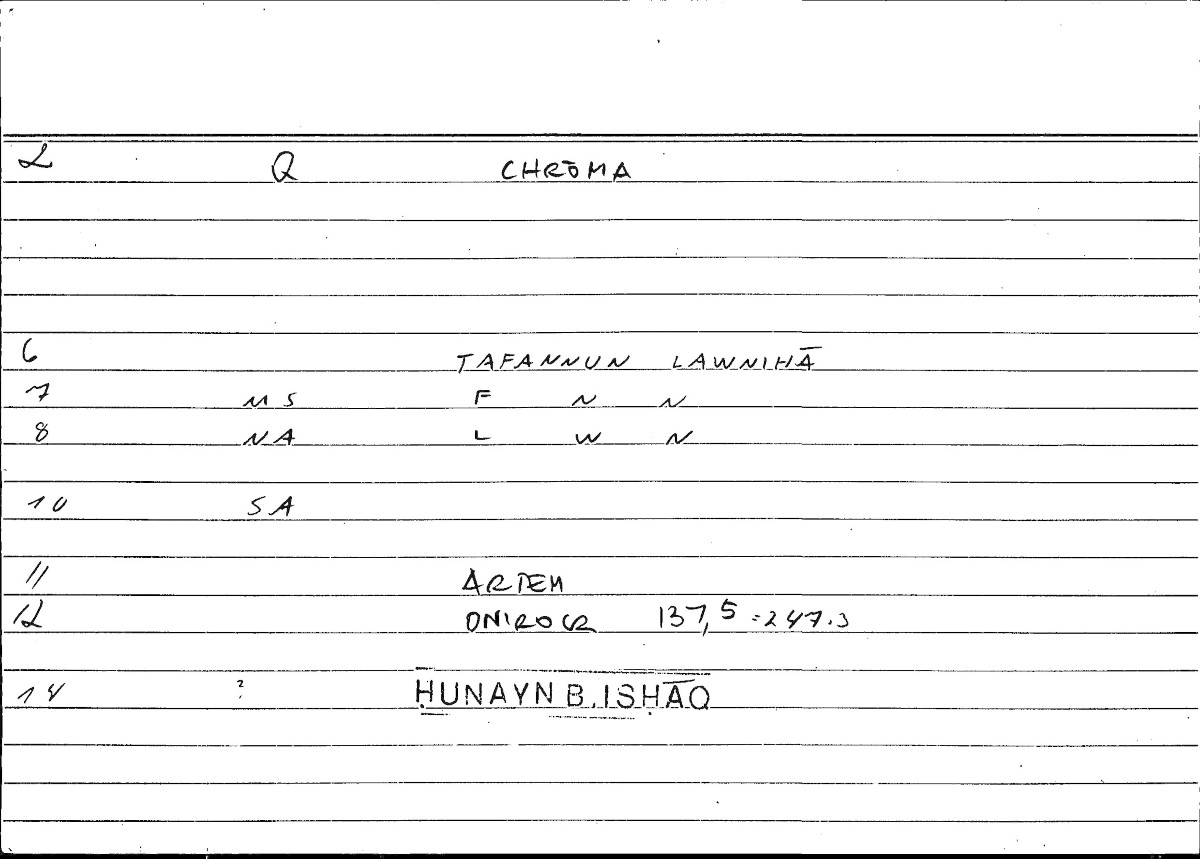 L Q CHRŌMA
6 TAFANNUN LAWNIHĀ
7 MS F N N
8 NA L W N
10 SA
11 ARTEM
12 ONIROCR 137,5 = 247.3
14 ? ḤUNAYN B. ISḤĀQ